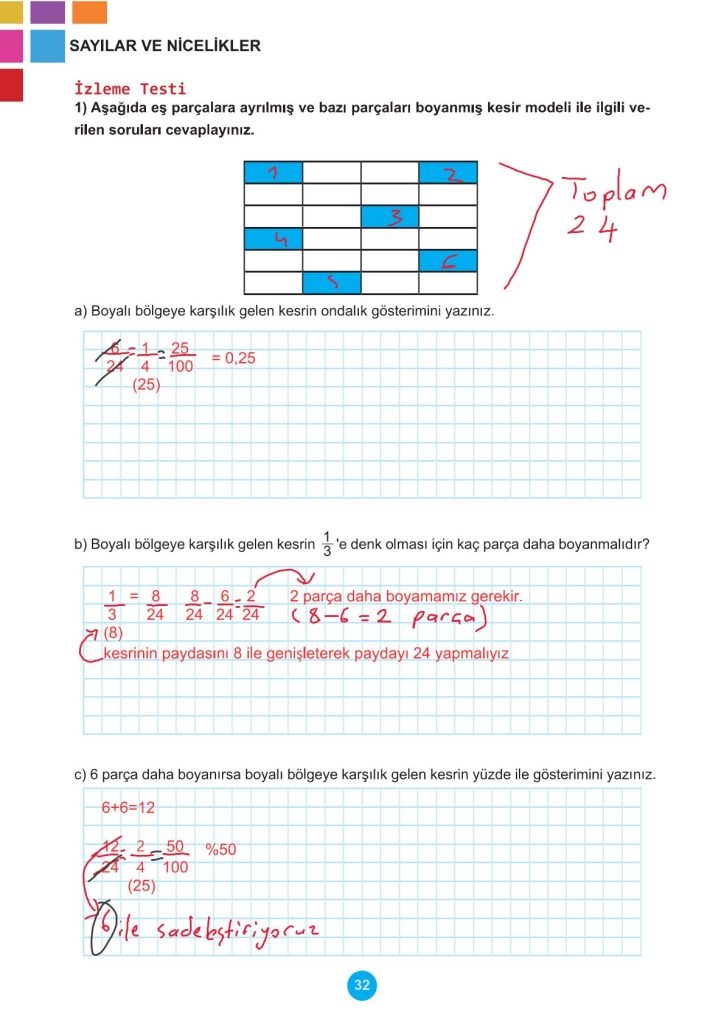 SAYILAR VE NİCELİKLER
İzleme Testi
1) Aşağıda eş parçalara ayrılmış ve bazı parçaları boyanmış kesir modeli ile ilgili ve-
rilen soruları cevaplayınız.
1 2
3
4
6
5
Toplam
24
a) Boyalı bölgeye karşılık gelen kesrin ondalık gösterimini yazınız.
6/24 = 1/4 = 25/100 = 0,25
(25)
b) Boyalı bölgeye karşılık gelen kesrin 1/3 'e denk olması için kaç parça daha boyanmalıdır?
1/3 = 8/24 8/24 - 6/24 = 2/24 2 parça daha boyamamız gerekir.
(8-6=2 parça)
(8)
kesrinin paydasını 8 ile genişleterek paydayı 24 yapmalıyız
c) 6 parça daha boyanırsa boyalı bölgeye karşılık gelen kesrin yüzde ile gösterimini yazınız.
6+6=12
12/24 = 2/4 = 50/100 %50
(25)
6 ile sadeleştiriyoruz
32